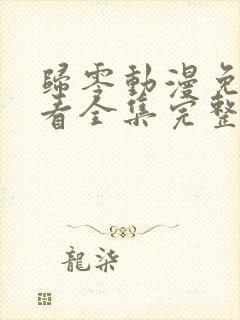 歸零動漫免
看全集完整
龍柒